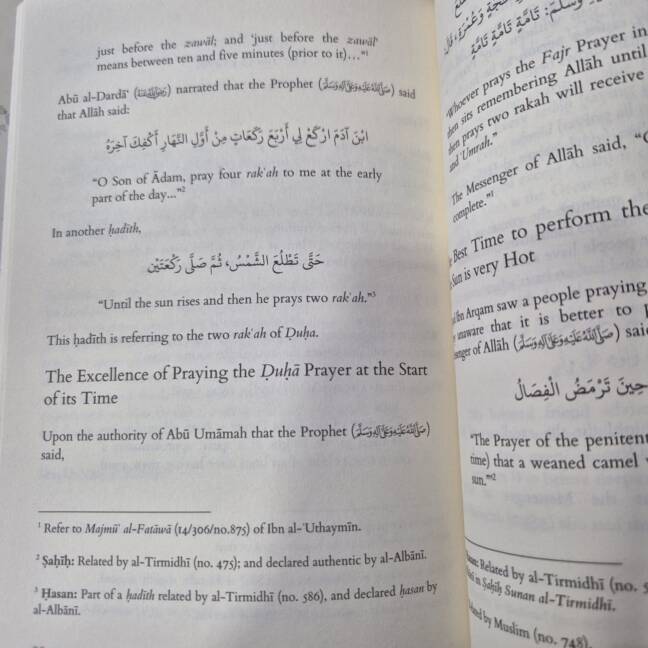 just before the zawāl; and 'just before the zawāl'
means between ten and five minutes (prior to it)..."¹
Abū al-Dardā' (رضي الله عنه) narrated that the Prophet (صلى الله عليه وآله وسلم) said
that Allāh said:
ابْنَ آدَمَ ارْكَعْ لِي أَرْبَعَ رَكَعَاتٍ مِنْ أَوَّلِ النَّهَارِ أَكْفِكَ آخِرَهُ
"O Son of Ādam, pray four rak'ah to me at the early
part of the day..."²
In another ḥadīth,
حَتَّى تَطْلُعَ الشَّمْسُ، ثُمَّ صَلَّى رَكْعَتَيْنِ
"Until the sun rises and then he prays two rak'ah."³
This ḥadīth is referring to the two rak'ah of Ḍuḥa.
The Excellence of Praying the Ḍuḥā Prayer at the Start
of its Time
Upon the authority of Abū Umāmah that the Prophet (صلى الله عليه وآله وسلم)
said,
¹ Refer to Majmū' al-Fatāwā (14/306/no.875) of Ibn al-'Uthaymīn.
² Ṣaḥīḥ: Related by al-Tirmidhī (no. 475); and declared authentic by al-Albānī.
³ Ḥasan: Part of a ḥadīth related by al-Tirmidhī (no. 586), and declared ḥasan by
al-Albānī.
وَعُمْرَةٍ
وَسَلَّمَ: تَامَّةٍ تَامَّةٍ تَامَّةٍ
"Whoever prays the Fajr Prayer in
then sits remembering Allāh until
then prays two rakah will receive
and 'Umrah."
The Messenger of Allāh said, "C
complete."¹
Best Time to perform the
Sun is very Hot
Ibn Arqam saw a people praying
unaware that it is better to
senger of Allāh (صلى الله عليه وآله وسلم) said
حِينَ تَرْمَضُ الْفِصَالُ
"The Prayer of the penitent
time) that a weaned camel
sun."²
Ḥasan: Related by al-Tirmidhī (no. 5
in Ṣaḥīḥ Sunan al-Tirmidhī.
by Muslim (no. 748).